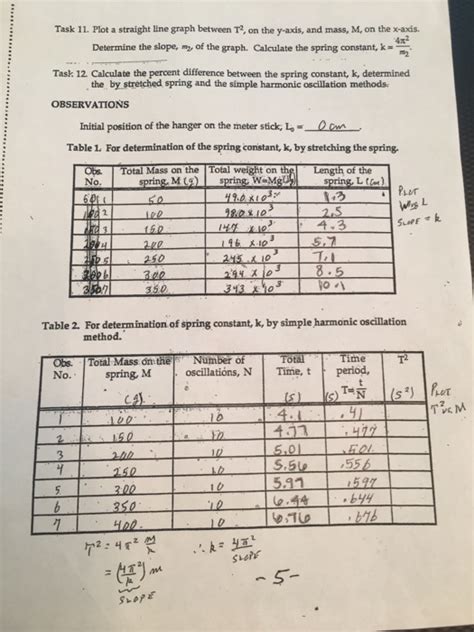 Task 11. Plot a straight line graph between T², on the y-axis, and mass, M, on the x-axis.
Determine the slope, m₂, of the graph. Calculate the spring constant, k = 4π²/m₂
Task 12. Calculate the percent difference between the spring constant, k, determined
the by stretched spring and the simple harmonic oscillation methods.
OBSERVATIONS
Initial position of the hanger on the meter stick, L₀ = 0 cm
Table 1. For determination of the spring constant, k, by stretching the spring.
Obs. Total Mass on the Total weight on the Length of the
No. spring, M (g) spring, W=Mg spring, L (cm)
1 50 49.0 x 10³ 1.3
2 100 98.0 x 10³ 2.5
3 150 147 x 10³ 4.3
4 200 196 x 10³ 5.7
5 250 245 x 10³ 7.1
6 300 294 x 10³ 8.5
7 350 343 x 10³ 10.1
PLOT
W vs L
SLOPE = k
Table 2. For determination of spring constant, k, by simple harmonic oscillation
method.
Obs. Total Mass on the Number of Total Time T²
No. spring, M oscillations, N Time, t period,
(g) (s) (s) T=t/N (s²)
1 100 10 4.1 .41
2 150 10 4.77 .477
3 200 10 5.01 .501
4 250 10 5.56 .556
5 300 10 5.97 .597
6 350 10 6.44 .644
7 400 10 6.76 .676
PLOT
T² vs. M
T² = 4π² m/k ∴ k = 4π²/SLOPE
= (4π²/k) m
SLOPE
-5-